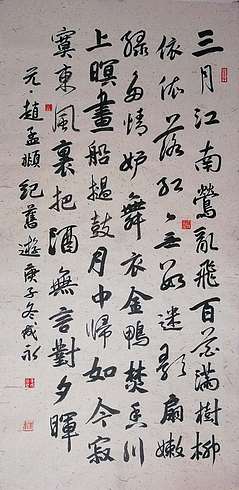 三月江南鶯亂飛百花滿樹柳
依依落紅無數迷歌扇嫩
綠多情妒舞衣金鴨焚香川
上暝畫船撾鼓月中歸如今寂
寞東風裏把酒無言對夕暉
元·趙孟頫紀舊遊庚子冬成